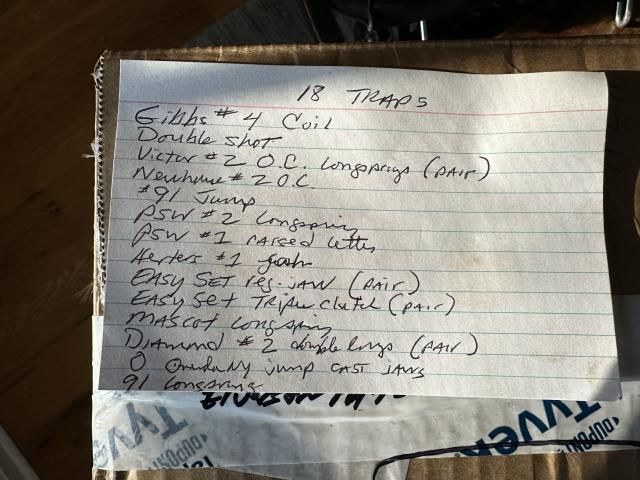 18 TRAPS
Gibbs # 4 Coil
Double shot
Victor # 2 O.C. Longsprings (pair)
Newhouse # 2 O.C.
#91 Jump
PSW #2 Longspring
PSW #1 raised letter
Herters #1
EASY SET reg. JAW (PAIR)
EASY Set Triple clutch (PAIR)
MASCOT Longspring
Diamond # 2 double longs (PAIR)
0 Oneida NY jump CAST JAWS
91 Longspring
Tyvek
DUPONT
Tyvek
DUPONT